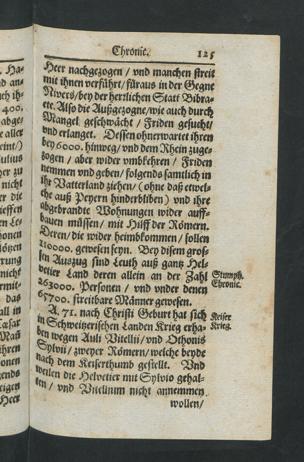 Chronic. 125
Heer nachgezogen / vnd manchen streit
mit ihnen verführt / füraus in der Gegne
Nivers / bey der herrlichen Statt Bibra-
cte. Also die Außgezogne / wie auch durch
Mangel geschwächt / Friden gesucht /
vnd erlanget. Dessen ohnerwartet ihren
bey 6000. hinweg / vnd dem Rhein zuge-
zogen / aber wider vmbkehren / Friden
nemmen vnd geben / folgends samtlich in
ihr Vatterland ziehen / (ohne daß etwel-
che auß Peyern hinderbliben) vnd ihre
abgebrandte Wohnungen wider auff-
bauen müssen / mit Hilff der Römern.
Deren / die wider heimbkommen / sollen
110000. gewesen seyn. Bey disem gros-
sen Auszug sind Leuth auß gantz Hel-
vetier Land deren allein an der Zahl
263000. Personen / vnd vnder denen
65700. streitbare Männer gewesen.
Stumpff.
Chronic.
A. 71. nach Christi Geburt hat sich
in Schweitzerischen Landen Krieg erha-
ben wegen Auli Vitellii / vnd Othonis
Sylvii / zweyer Römern / welche beyde
nach dem Keiserthumb gestellt. Vnd
weilen die Helvetier mit Sylvio gehal-
ten / vnd Vitellium nicht annemmen
wollen /
Keiser
Krieg.